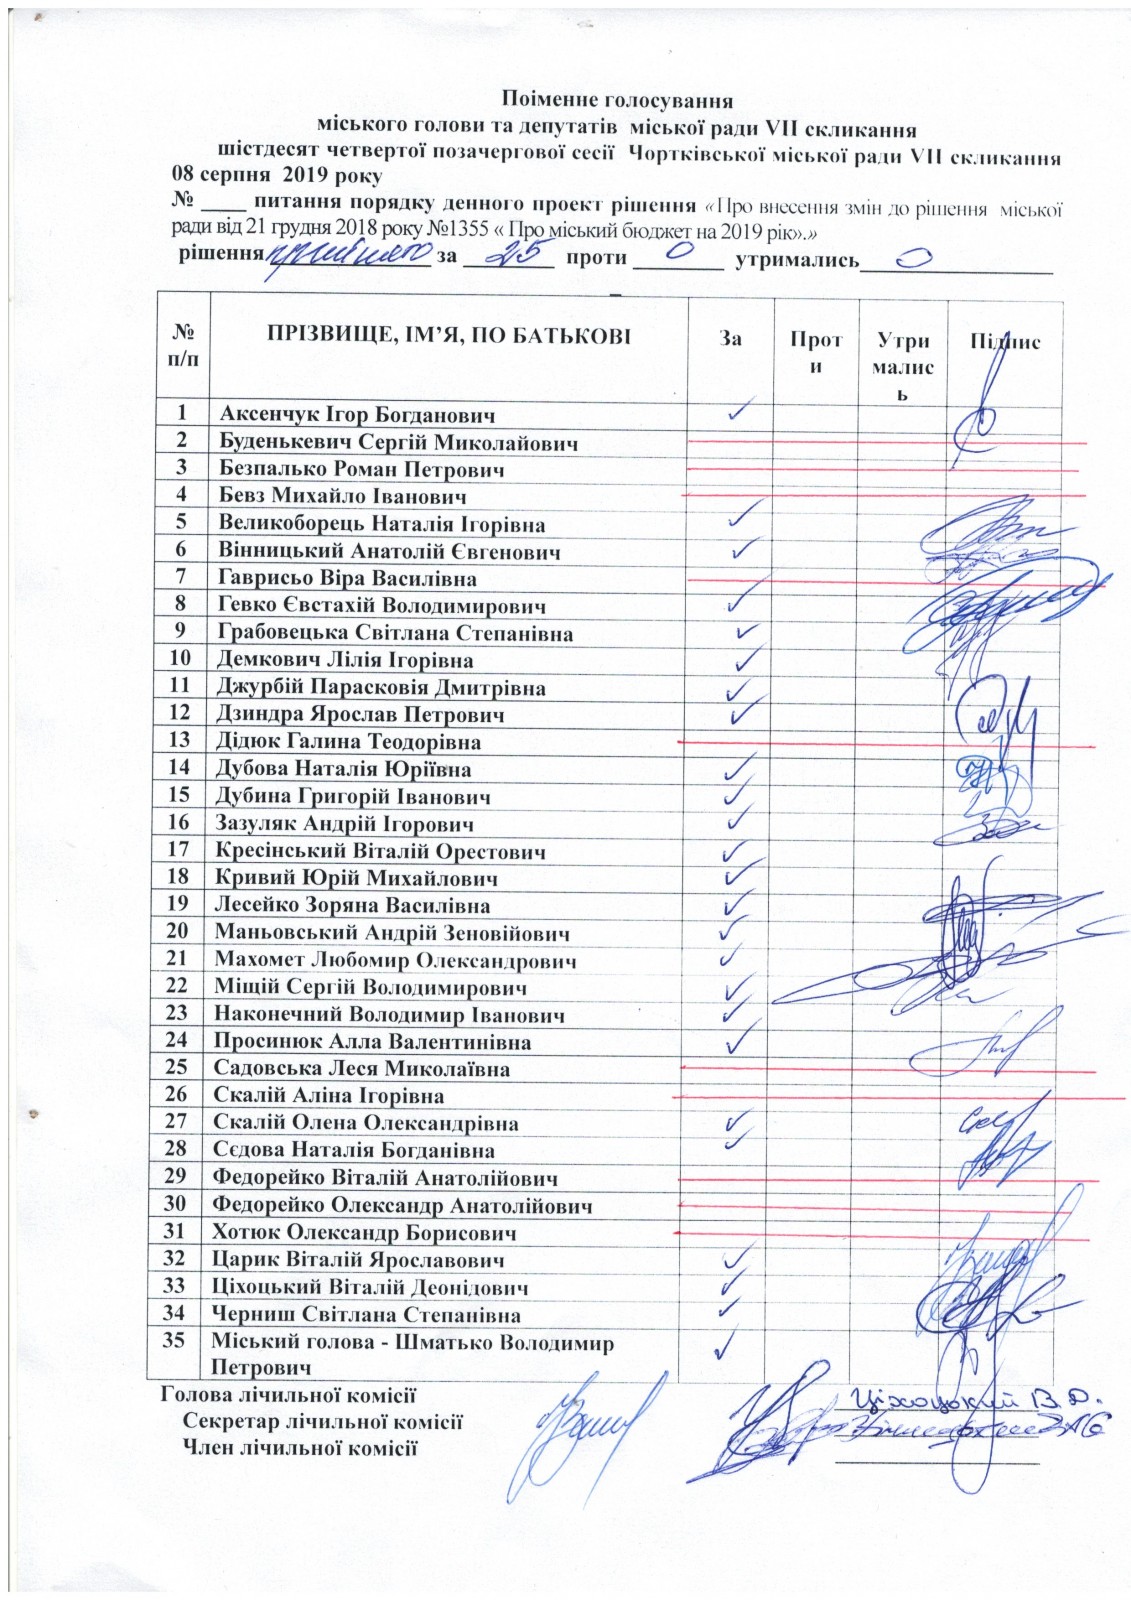 Поіменне голосування
міського голови та депутатів міської ради VII скликання
шістдесят четвертої позачергової сесії Чортківської міської ради VII скликання
08 серпня 2019 року
№ ____ питання порядку денного проект рішення «Про внесення змін до рішення міської
ради від 21 грудня 2018 року №1355 « Про міський бюджет на 2019 рік».»
рішення прийнято за 25 проти 0 утримались 0
№ п/п ПРІЗВИЩЕ, ІМ’Я, ПО БАТЬКОВІ За Проти Утрималисьь Підпис
1 Аксенчук Ігор Богданович ✓
2 Буденькевич Сергій Миколайович
3 Безпалько Роман Петрович
4 Бевз Михайло Іванович
5 Великоборець Наталія Ігорівна ✓
6 Вінницький Анатолій Євгенович ✓
7 Гаврисьо Віра Василівна
8 Гевко Євстахій Володимирович ✓
9 Грабовецька Світлана Степанівна ✓
10 Демкович Лілія Ігорівна ✓
11 Джурбій Парасковія Дмитрівна ✓
12 Дзиндра Ярослав Петрович ✓
13 Дідюк Галина Теодорівна
14 Дубова Наталія Юріївна ✓
15 Дубина Григорій Іванович ✓
16 Зазуляк Андрій Ігорович ✓
17 Кресінський Віталій Орестович ✓
18 Кривий Юрій Михайлович ✓
19 Лесейко Зоряна Василівна ✓
20 Маньовський Андрій Зеновійович ✓
21 Махомет Любомир Олександрович ✓
22 Міщій Сергій Володимирович ✓
23 Наконечний Володимир Іванович ✓
24 Просинюк Алла Валентинівна ✓
25 Садовська Леся Миколаївна
26 Скалій Аліна Ігорівна
27 Скалій Олена Олександрівна ✓
28 Сєдова Наталія Богданівна ✓
29 Федорейко Віталій Анатолійович
30 Федорейко Олександр Анатолійович
31 Хотюк Олександр Борисович
32 Царик Віталій Ярославович ✓
33 Ціхоцький Віталій Деонідович ✓
34 Черниш Світлана Степанівна ✓
35 Міський голова - Шматько Володимир ✓
Петрович
Голова лічильної комісії Ціхоцький В.Д.
Секретар лічильної комісії
Член лічильної комісії